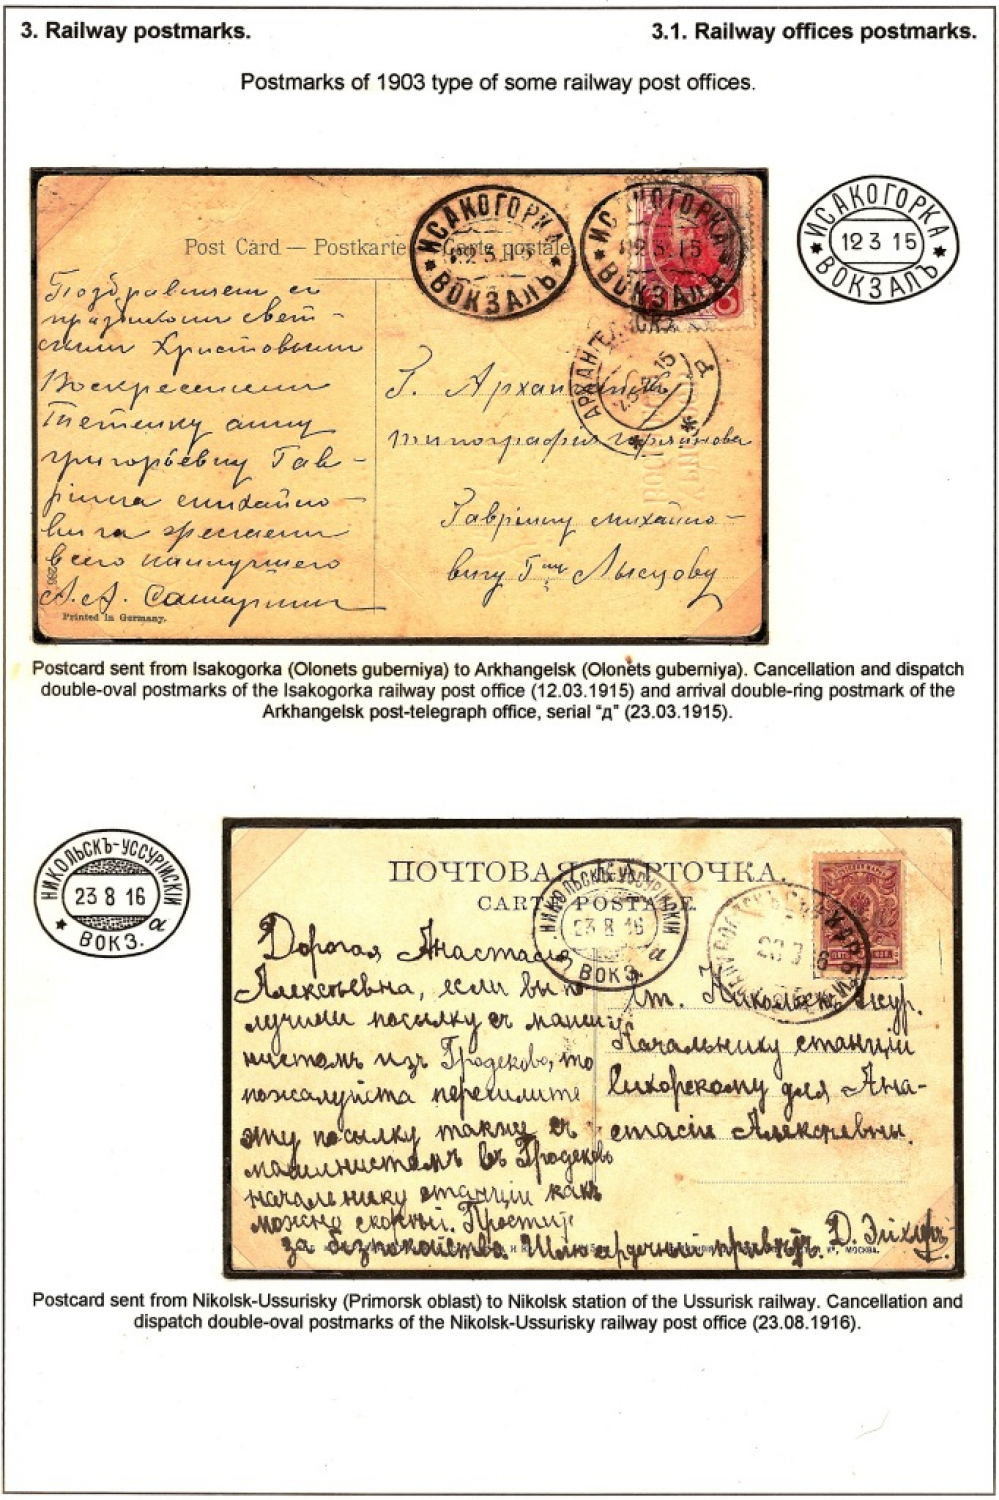 3. Railway postmarks.
3.1. Railway offices postmarks.
Postmarks of 1903 type of some railway post offices.
Post Card — Postkarte — Carte postale
ИСАКОГОРКА
12 3 15
ВОКЗАЛЪ
ИСАКОГОРКА
12 3 15
ВОКЗАЛЪ
ИСАКОГОРКА
12 3 15
ВОКЗАЛЪ
АРХАНГЕЛЬСКЪ
15
Д
Поздравляем съ
праздником свет-
лым Христовым
Воскресением
Тетеньку анну
григорьевну Гав-
рiила михайло-
вича желаем
всего наилучшего
А. А.
Г. Архангельск
типография горяинова
Гаврiилу михайло-
вичу Гну Лысцову
Printed in Germany.
Postcard sent from Isakogorka (Olonets guberniya) to Arkhangelsk (Olonets guberniya). Cancellation and dispatch
double-oval postmarks of the Isakogorka railway post office (12.03.1915) and arrival double-ring postmark of the
Arkhangelsk post-telegraph office, serial “д” (23.03.1915).
НИКОЛЬСКЪ-УССУРІЙСКІЙ
23 8 16
ВОКЗ.
а
ПОЧТОВАЯ КАРТОЧКА.
CARTE POSTALE.
НИКОЛЬСКЪ-УССУРІЙСКІЙ
23 8 16
ВОКЗ.
а
Дорогая Анастасія
Алексѣевна, если вы по
лучили посылку съ маши
нистомъ изъ Гродеково, то
пожалуйста перешлите
эту посылку также съ
машинистомъ въ Гродеково
начальнику станціи какъ
можно скорѣй. Простите
за безпокойство. Шлю сердечный привѣтъ. Д.
ст. Никольскъ Уссур.
Начальнику станціи
Лихорскому для Ана-
стасіи Алексѣевны.
МОСКВА.
Postcard sent from Nikolsk-Ussurisky (Primorsk oblast) to Nikolsk station of the Ussurisk railway. Cancellation and
dispatch double-oval postmarks of the Nikolsk-Ussurisky railway post office (23.08.1916).